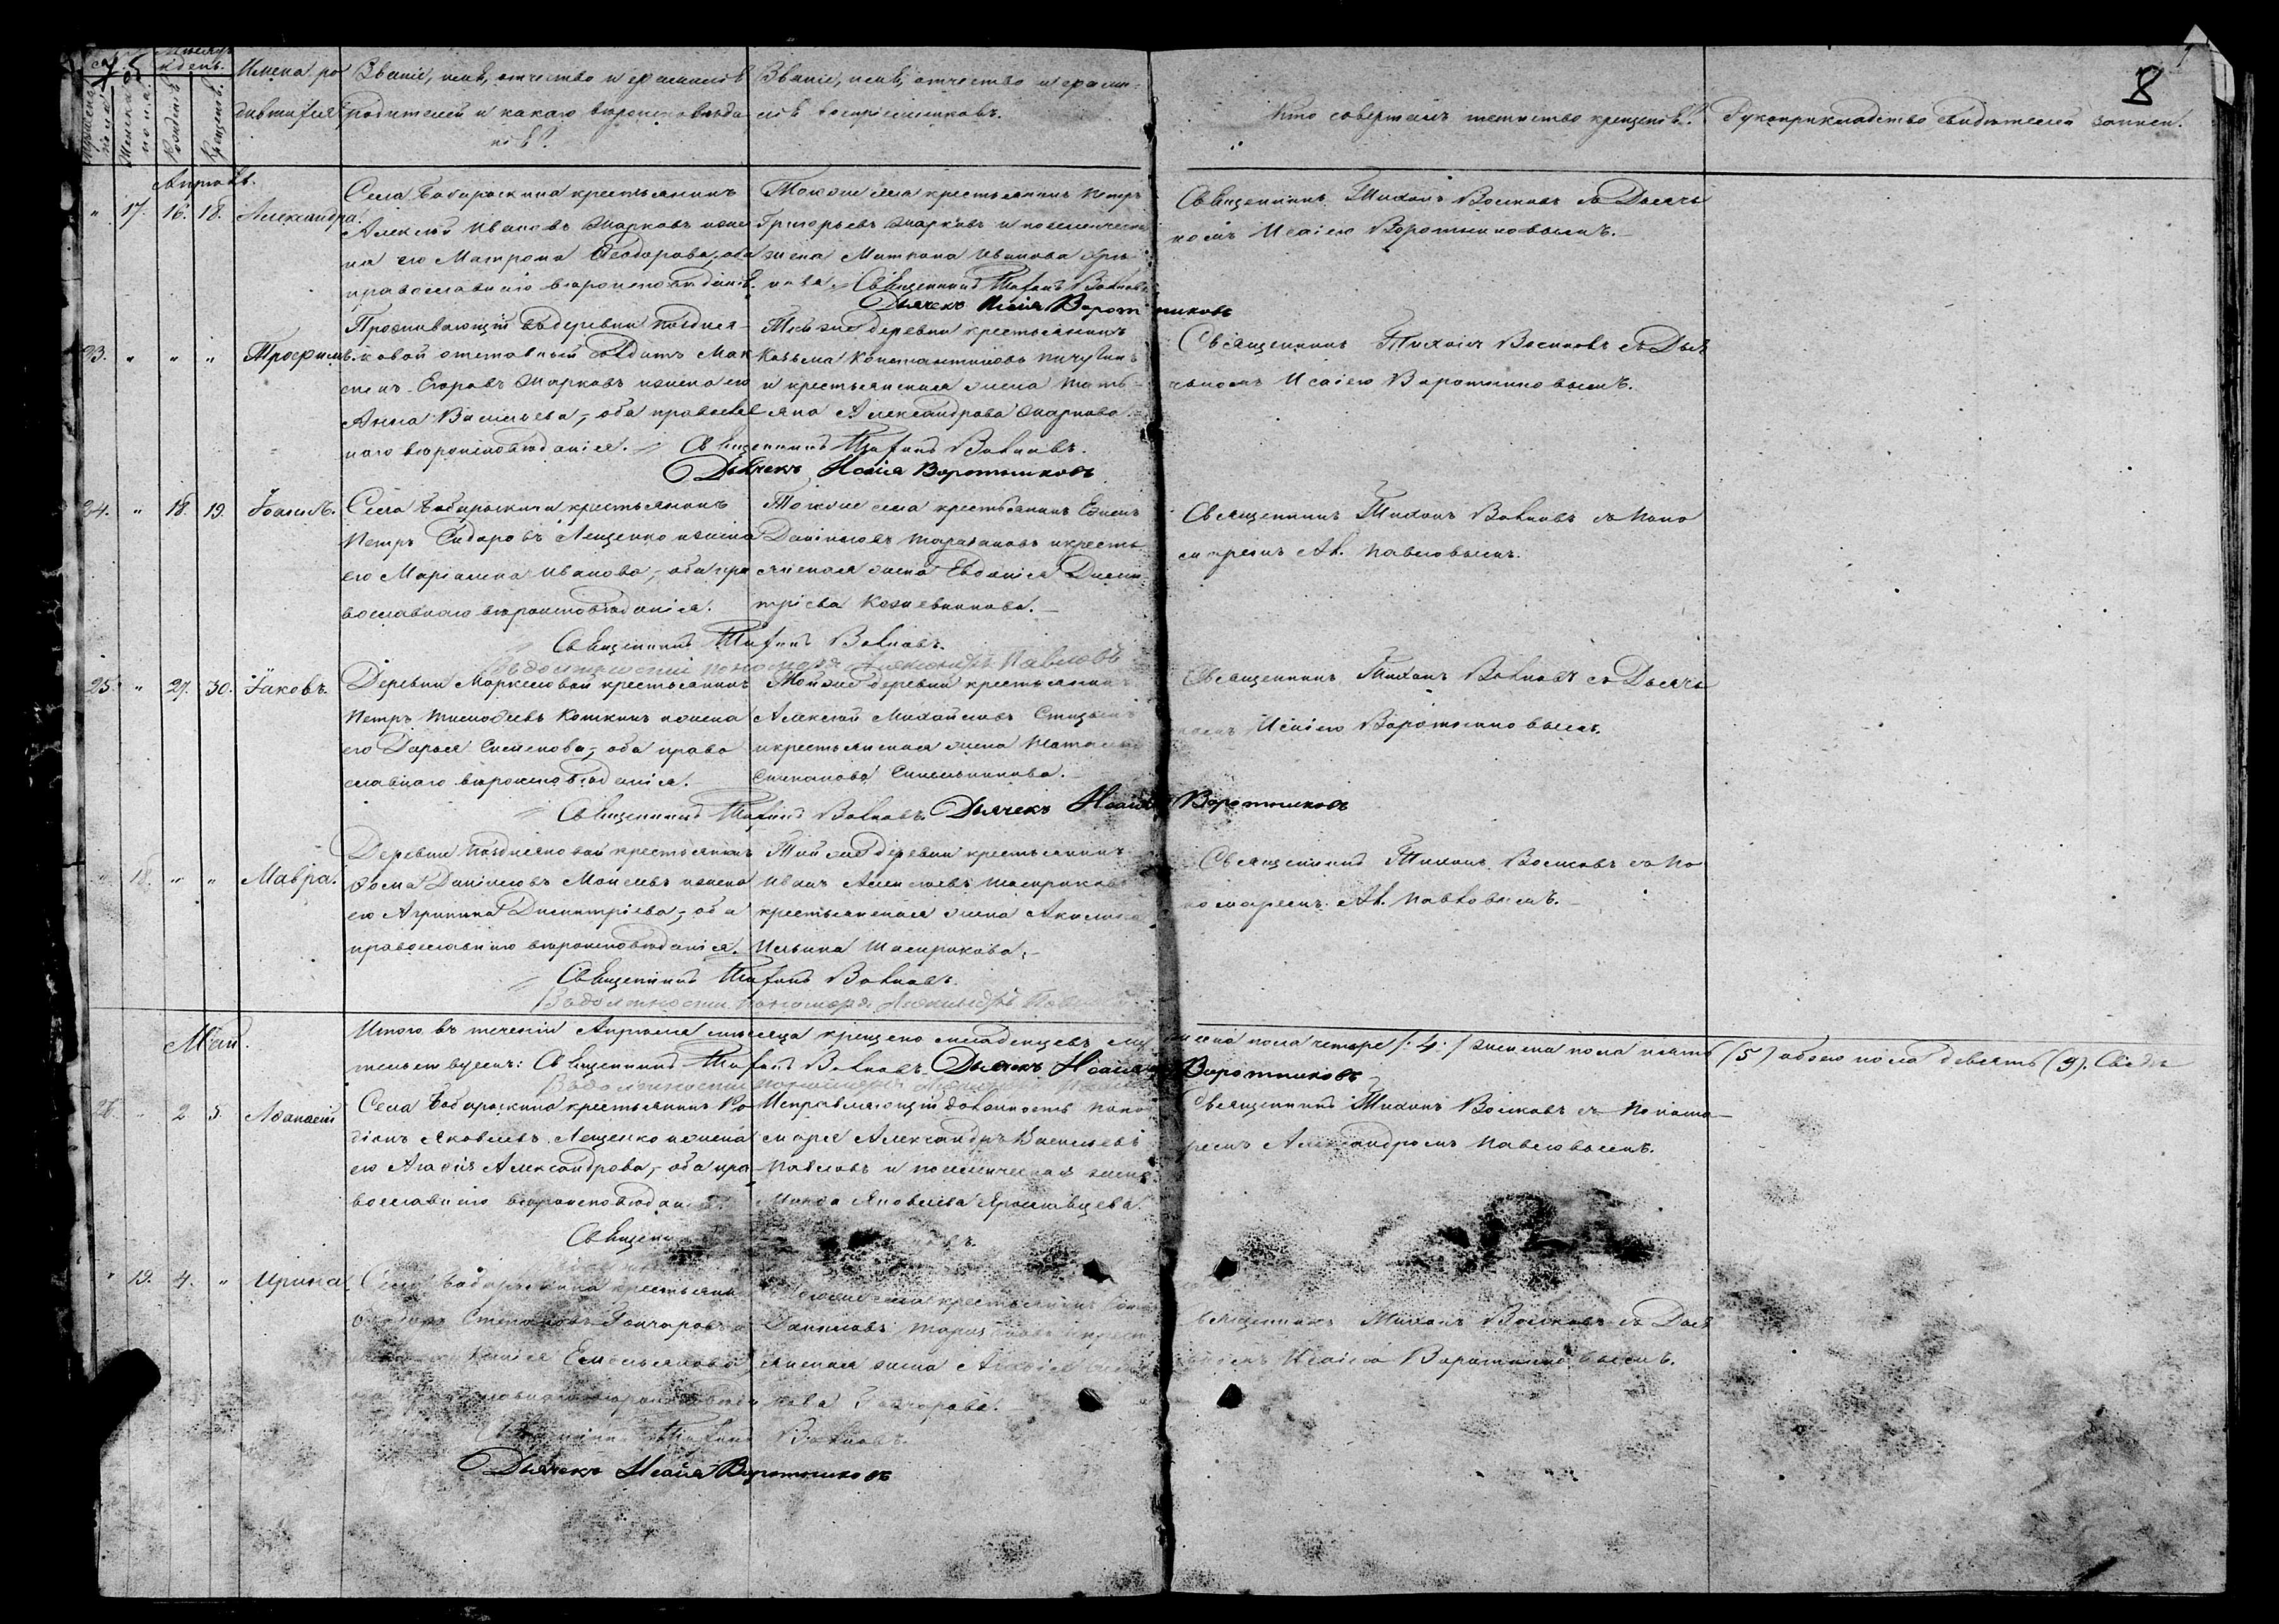 8
Мѣсяцъ
и день.
Имена ро
дившихся
Званіе, имя, отчество и фамилія
родителей и какаго вѣроисповѣда
нія?
Званіе, имя, отчество и фами
лія воспріемниковъ.
Кто совершалъ таинство крещенія?
Рукоприкладство свидѣтелей записи.
Мужеска пола
Женска пола
Рожденія
Крещенія.
Апрѣль.
" 17. 16. 18. Александра.
Села Бабарыкина крестьянинъ
Алексѣй Ивановъ Жарковъ и жена
его Матрона Ѳеодорова, оба
православнаго вѣроисповѣданія.
Тогоже села крестьянинъ Петръ
Григорьевъ Жарковъ и
жена Иванова
Священникъ Тихонъ Волковъ
Дьячекъ Исаія Воротниковъ
Священникъ Тихонъ Волковъ съ Дьяч
комъ Исаіею Воротниковымъ.
23. " " " Трофимъ.
Проживающій въ деревни Поздня
ковой отставный солдатъ Мак
симъ Егоровъ Жарковъ и жена его
Анна Васильева, оба православ
наго вѣроисповѣданія.
Тойже деревни крестьянинъ
Козьма Константиновъ Пичугинъ
и крестьянская жена Тать
яна Александрова Жаркова.
Священникъ Тихонъ Волковъ.
Дьячекъ Исаія Воротниковъ
Священникъ Тихонъ Волковъ съ Дья
чкомъ Исаіею Воротниковымъ.
24. " 18. 19. Іоаннъ.
Села Бабарыкина крестьянинъ
Петръ Сидоровъ Лещенко и жена
его Маріамна Иванова, оба пра
вославнаго вѣроисповѣданія.
Тогоже села крестьянинъ
Даниловъ Таракановъ и кресть
янская жена Евдокія Дими
тріева Кожевникова.
Священникъ Тихонъ Волковъ.
Въ должности пономаря Александръ Павловъ
Священникъ Тихонъ Волковъ съ Поно
маремъ Ал. Павловымъ.
25. " 27. 30. Іаковъ.
Деревни Маркеловой крестьянинъ
Петръ Тимоѳеевъ Коткинъ и жена
его Дарья Семенова, оба право
славнаго вѣроисповѣданія.
Тойже деревни крестьянинъ
Алексѣй Михайловъ
и крестьянская жена
Степанова
Священникъ Тихонъ Волковъ. Дьячекъ Исаія Воротниковъ
Священникъ Тихонъ Волковъ съ Дьяч
комъ Исаіею Воротниковымъ.
" 18. " " Мавра.
Деревни Поздняковой крестьянинъ
Ѳома Даниловъ Моисеевъ и жена
его Агрипина Димитріева, оба
православнаго вѣроисповѣданія.
Той же деревни крестьянинъ
Иванъ Алексѣевъ
крестьянская жена Акилина
Ильина
Священникъ Тихонъ Волковъ.
Въ должности пономаря Александръ Павловъ
Священникъ Тихонъ Волковъ съ По
номаремъ Ал. Павловымъ.
Итого въ теченіи Апрѣля мѣсяца крещено младенцевъ мужеска пола четыре /:4:/ женска пола пять (5) обоего пола девять (9). Свидѣ
тельствуемъ: Священникъ Тихонъ Волковъ. Дьячекъ Исаія Воротниковъ
Въ должности пономаря Александръ Павловъ
Май.
26. " 2 5. Аѳанасій
Села Бабарыкина крестьянинъ Ро
діонъ Яковлевъ Лещенко и жена
его Агафія Александрова, оба пра
вославнаго вѣроисповѣданія.
Исправляющій должность поно
маря Александръ Васильевъ
Павловъ и жена
Яковлева
Священникъ
Священникъ Тихонъ Волковъ съ Понома
ремъ Александромъ Павловымъ.
" 19. 4. " Ирина
Села Бабарыкина крестьянинъ
Степановъ Гончаровъ и
Емельянова
Тогоже села крестьянинъ
Даниловъ
янская жена
Гончарова.
Священникъ Тихонъ Волковъ.
Дьячекъ Исаія Воротниковъ
Священникъ Тихонъ Волковъ съ Дья
чкомъ Исаіею Воротниковымъ.